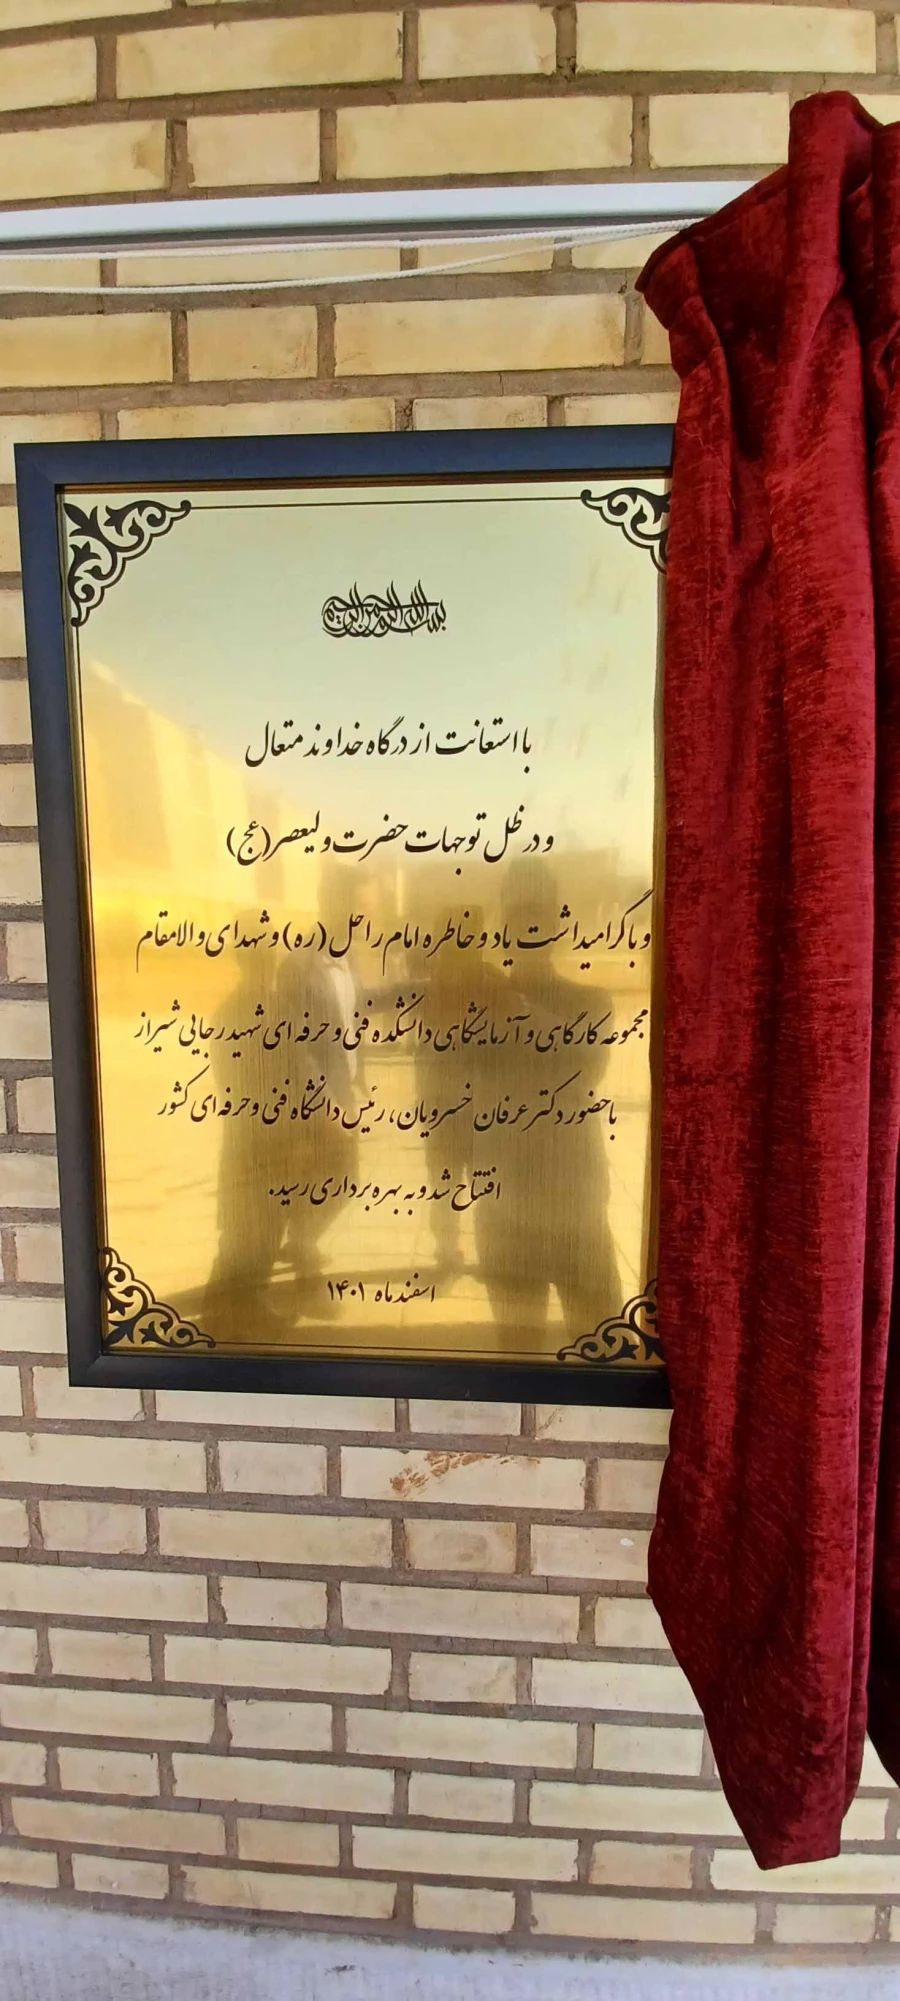 بسم الله الرحمن الرحیم
با استعانت از درگاه خداوند متعال
و در ظل توجهات حضرت ولیعصر (عج)
و با گرامیداشت یاد و خاطره امام راحل (ره) و شهدای والامقام
مجموعه کارگاهی و آزمایشگاهی دانشکده فنی و حرفه ای شهید رجایی شیراز
با حضور دکتر عرفان خسرویان، رئیس دانشگاه فنی و حرفه ای کشور
افتتاح شد و به بهره برداری رسید.
اسفند ماه ۱۴۰۱